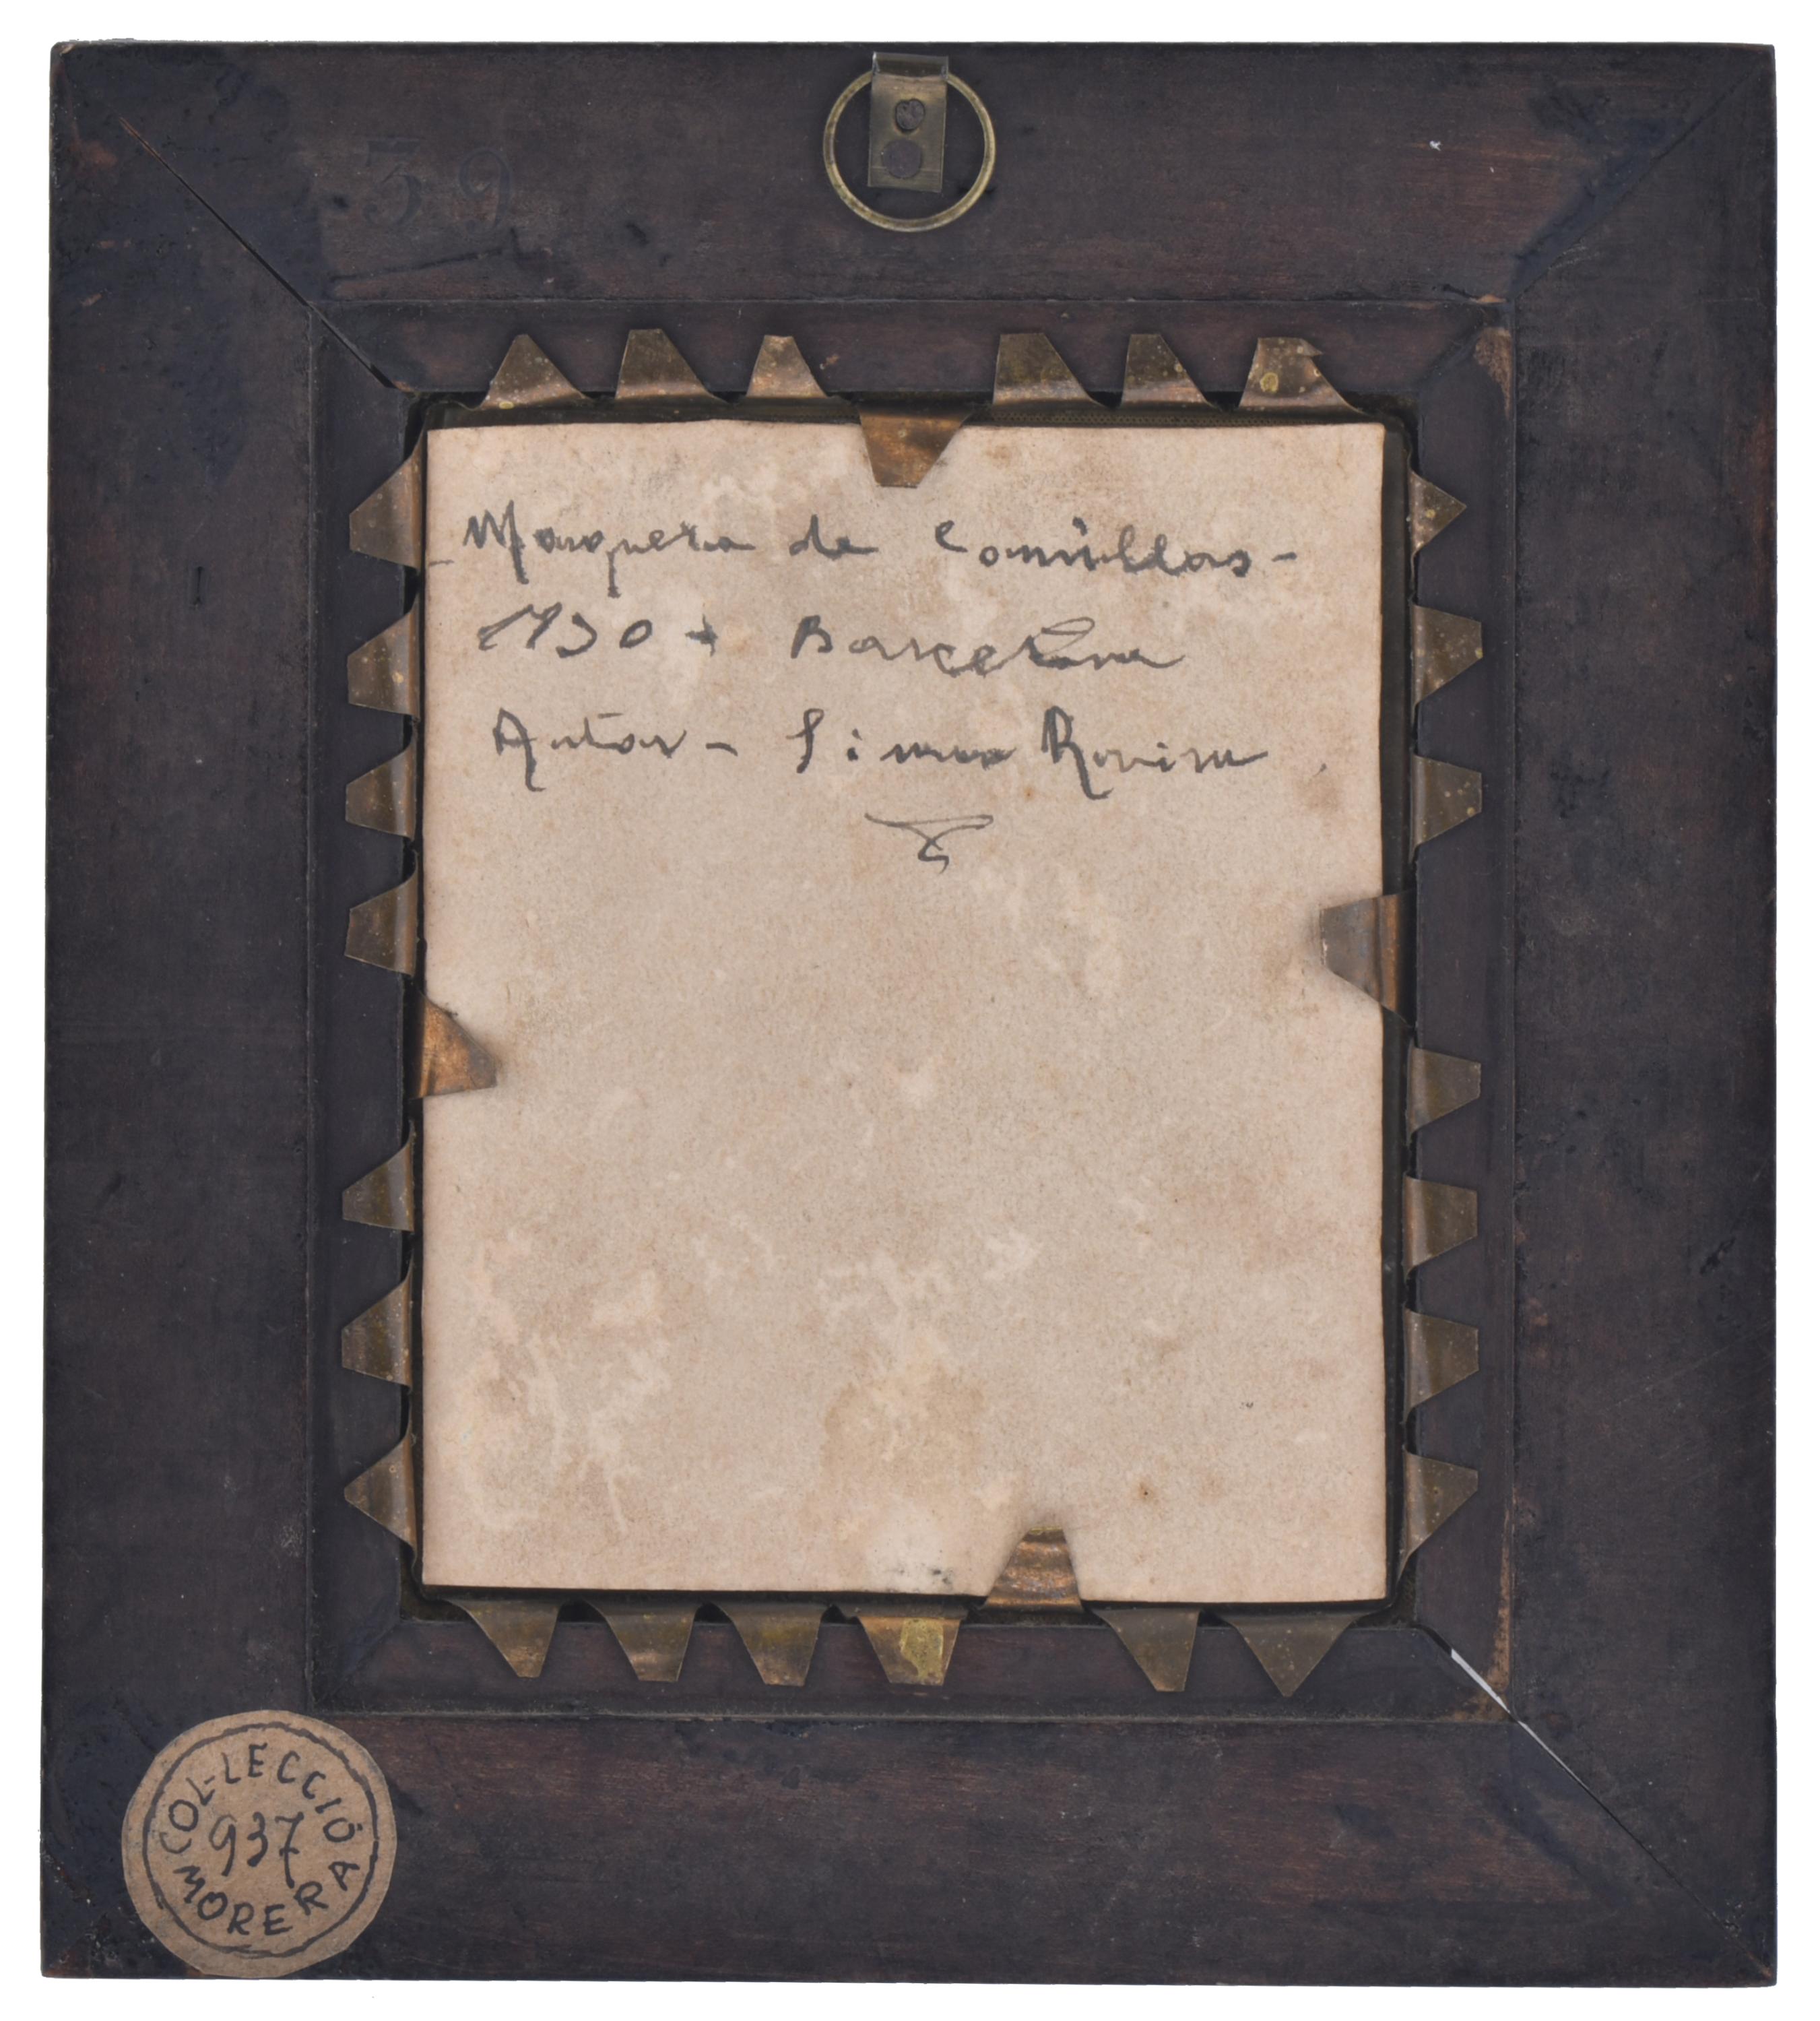 39
- Marquesa de Comillas -
1930 - Barcelona
Autor - Rovira
COL·LECCIÓ
937
MORERA